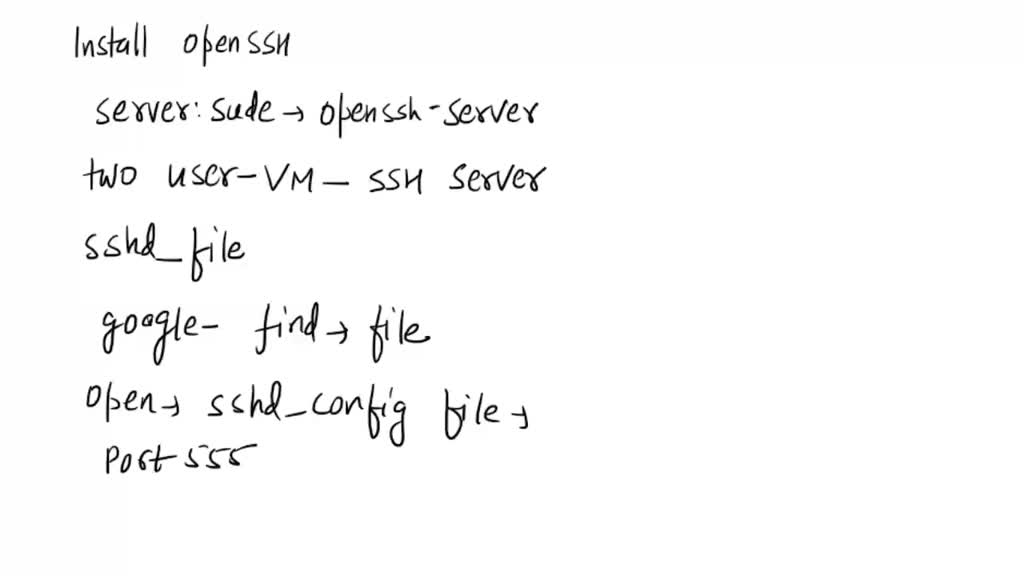 Install openSSH
server: sude → openssh-server
two user-VM- SSH server
sshd_file
google- find → file
open → sshd_config file →
Port 555